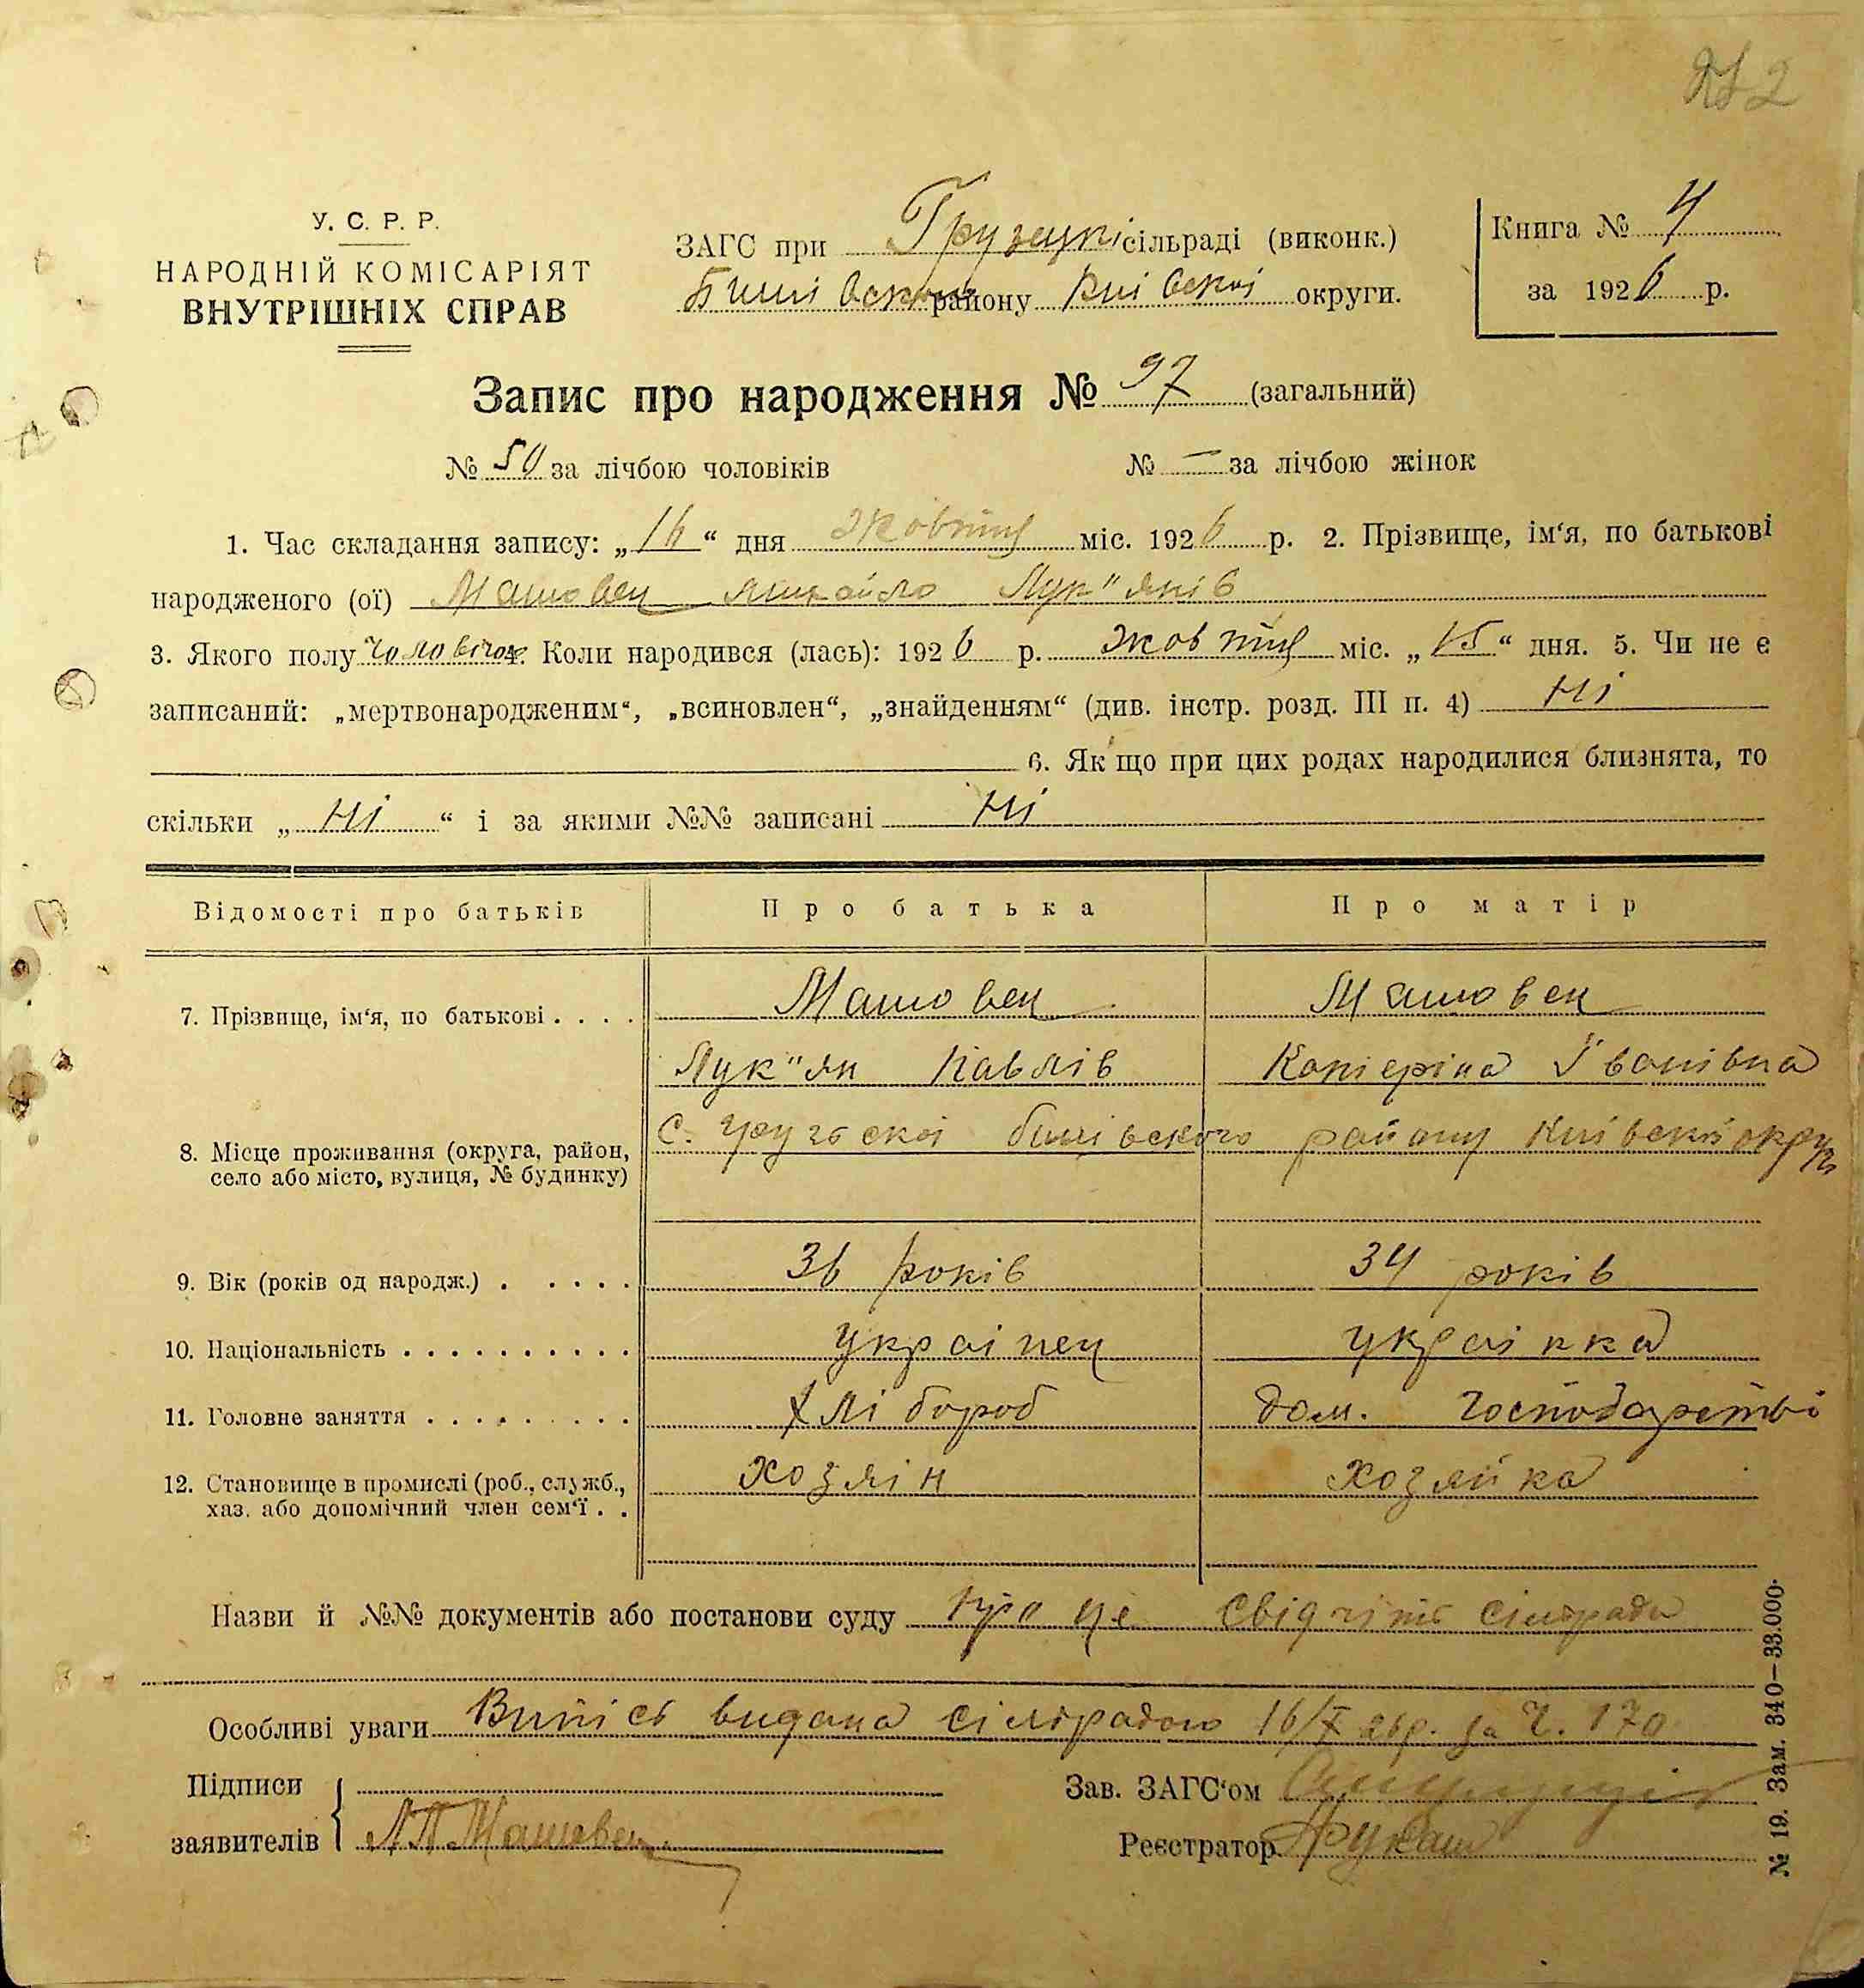 У. С. Р. Р.
НАРОДНІЙ КОМІСАРІЯТ
ВНУТРІШНІХ СПРАВ
ЗАГС при Грузецкі сільраді (виконк.)
Бишівськом району Київскої округи.
Книга № 4
за 1926 р.
Запис про народження № 97 (загальний)
№ 50 за лічбою чоловіків № — за лічбою жінок
1. Час складання запису: „16“ дня Жовтня міс. 1926 р. 2. Прізвище, ім‘я, по батькові
народженого (ої) Машовец Михайло Лук"янів
3. Якого полу чоловічог 4. Коли народився (лась): 1926 р. Жовтня міс. „15“ дня. 5. Чи не є
записаний: „мертвонародженим“, „всиновлен“, „знайденням“ (див. інстр. розд. III п. 4) Ні
6. Як що при цих родах народилися близнята, то
скільки „ Ні “ і за якими №№ записані Ні
Відомості про батьків Про батька Про матір
7. Прізвище, ім‘я, по батькові . . . . Машовец Машовец
Лук"ян Павлів Катеріна Іванівна
8. Місце проживання (округа, район, село або місто, вулиця, № будинку) С. Грузскої бишівского району Київскої округ
9. Вік (років од народж.) . . . . . 36 років 34 років
10. Національність . . . . . . . . . . українец українка
11. Головне заняття . . . . . . . . . хлібороб дом. господарстві
12. Становище в промислі (роб., служб., хаз. або допомічний член сем‘ї . . хозяін хозяйка
Назви й №№ документів або постанови суду про це свідчить сільрада
Особливі уваги Випісь видана сільрадою 16/X 26р. за Ч. 170
Підписи
заявителів Л П Машовец
Зав. ЗАГС‘ом
Реєстратор
№ 19. Зам. 340—33.000.